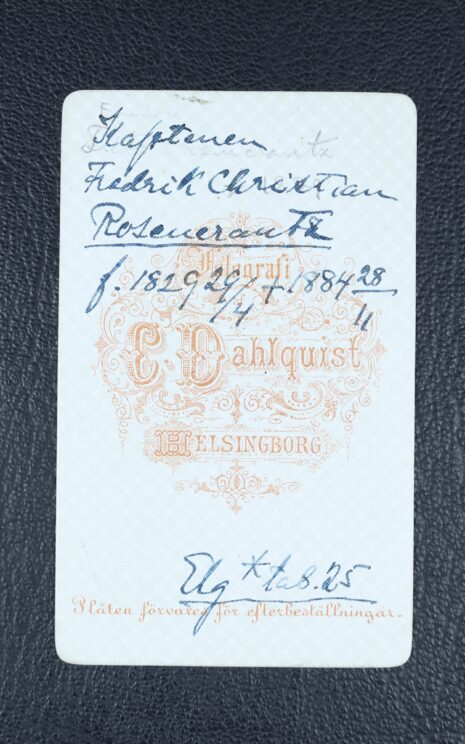 Kaptenen
Fredrik Christian
Rosencrantz
Fotografi
f. 1829 29/4 † 1884 28/11
C. Dahlquist
HELSINGBORG
Elg * tab. 25
Plåten förvaras för efterbeställningar.